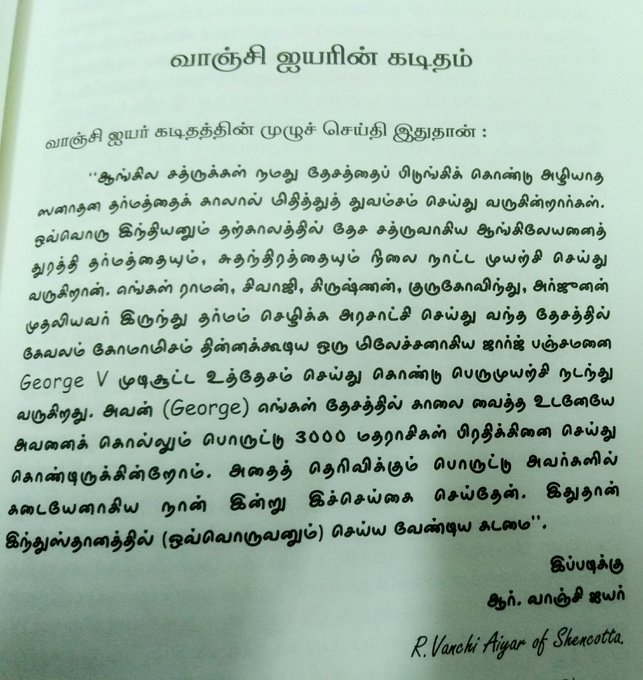 வாஞ்சி ஐயரின் கடிதம்
வாஞ்சி ஐயர் கடிதத்தின் முழுச் செய்தி இதுதான் :
“ஆங்கில சத்ருக்கள் நமது தேசத்தைப் பிடுங்கிக் கொண்டு அழியாத
ஸனாதன தர்மத்தைக் காலால் மிதித்துத் துவம்சம் செய்து வருகின்றார்கள்.
ஒவ்வொரு இந்தியனும் தற்காலத்தில் தேச சத்ருவாகிய ஆங்கிலேயனைத்
துரத்தி தர்மத்தையும், சுதந்திரத்தையும் நிலை நாட்ட முயற்சி செய்து
வருகிறான். எங்கள் ராமன், சிவாஜி, கிருஷ்ணன், குருகோவிந்து, அர்ஜுனன்
முதலியவர் இருந்து தர்மம் செழிக்க அரசாட்சி செய்து வந்த தேசத்தில்
கேவலம் கோமாமிசம் தின்னக்கூடிய ஒரு மிலேச்சனாகிய ஜார்ஜ் பஞ்சமனை
George V முடிசூட்ட உத்தேசம் செய்து கொண்டு பெருமுயற்சி நடந்து
வருகிறது. அவன் (George) எங்கள் தேசத்தில் காலை வைத்த உடனேயே
அவனைக் கொல்லும் பொருட்டு 3000 மதராசிகள் பிரதிக்கினை செய்து
கொண்டிருக்கின்றோம். அதைத் தெரிவிக்கும் பொருட்டு அவர்களில்
கடையேனாகிய நான் இன்று இச்செய்கை செய்தேன். இதுதான்
இந்துஸ்தானத்தில் (ஒவ்வொருவனும்) செய்ய வேண்டிய கடமை”.
இப்படிக்கு
ஆர். வாஞ்சி ஐயர்
R.Vanchi Aiyar of Shencotta.